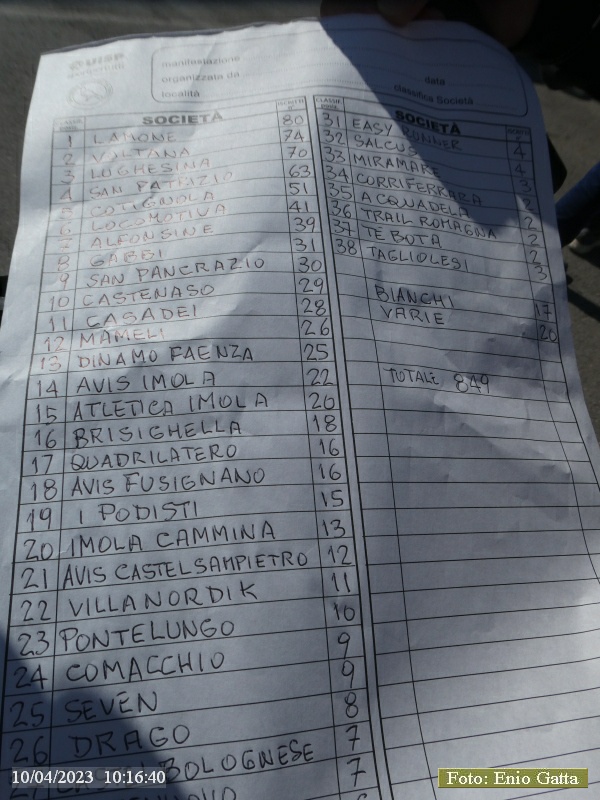 UISP
manifestazione
organizzata da
località
data
classifica Società
SOCIETÀ
1 LAMONE 80
2 VOLTANA 74
3 LUGHESINA 70
4 SAN PATRIZIO 63
5 COTIGNOLA 51
6 LOCOMOTIVA 41
7 ALFONSINE 39
8 GABBI 31
9 SAN PANCRAZIO 30
10 CASTENASO 29
11 CASADEI 28
12 MAMELI 26
13 DINAMO FAENZA 25
14 AVIS IMOLA 22
15 ATLETICA IMOLA 20
16 BRISIGHELLA 18
17 QUADRILATERO 16
18 AVIS FUSIGNANO 16
19 I PODISTI 15
20 IMOLA CAMMINA 13
21 AVIS CASTELSAMPIETRO 12
22 VILLANORDIK 11
23 PONTELUNGO 10
24 COMACCHIO 9
25 SEVEN 9
26 DRAGO 8
BOLOGNESE 7
7
SOCIETÀ
31 EASY RUNNER 4
32 SALCUS 4
33 MIRAMARE
34 CORRIFERRARA
35 ACQUADELA 2
36 TRAIL ROMAGNA 2
37 TE BOTA 2
38 TAGLIOLESI 3
BIANCHI 17
VARIE 20
TOTALE 849
10/04/2023 10:16:40
Foto: Enio Gatta